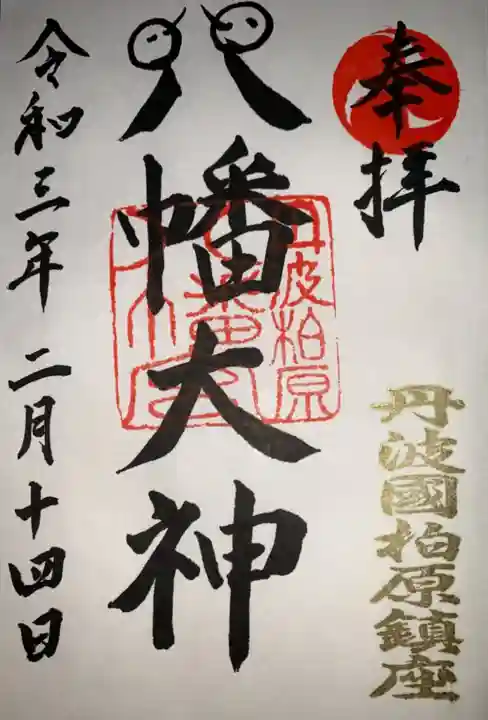 奉拝
丹波國柏原鎮座
八幡大神
丹波柏原
八幡宮
令和三年二月十四日